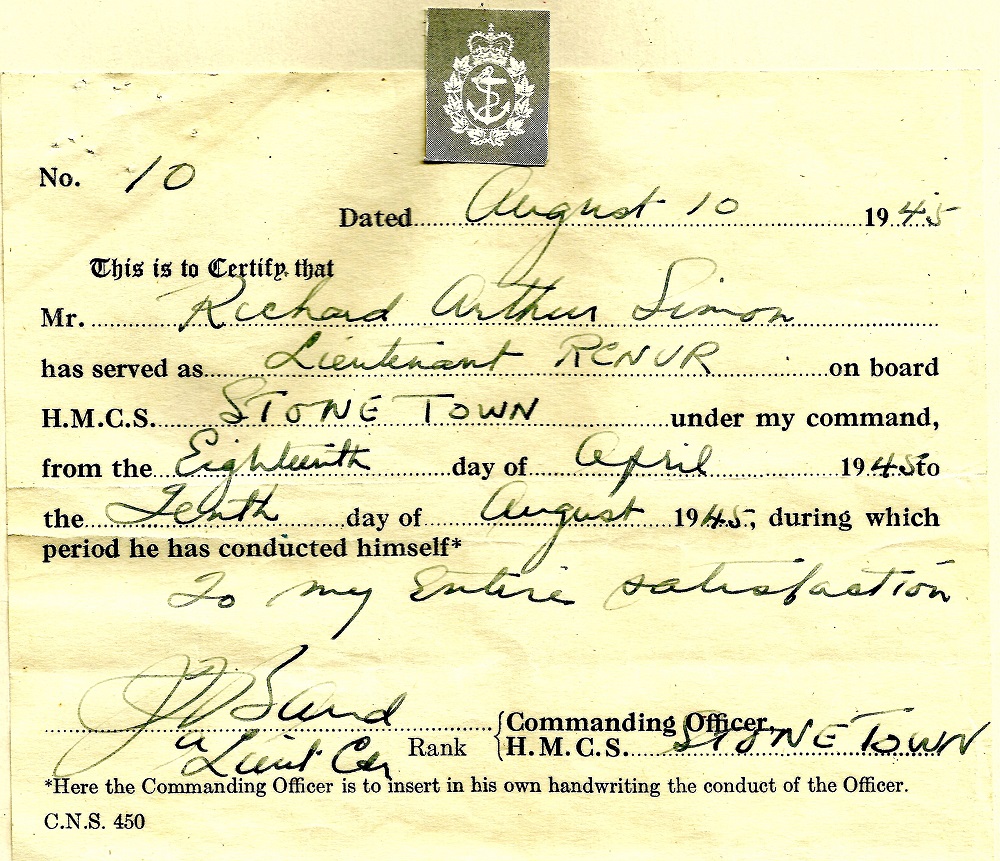 No. 10
Dated August 10 1945
This is to Certify that
Mr. Richard Arthur Simon
has served as Lieutenant RCNVR on board
H.M.C.S. STONE TOWN under my command,
from the Eighteenth day of April 1945 to
the Tenth day of August 1945, during which
period he has conducted himself*
To my Entire satisfaction
Commanding Officer,
a/Lieut Cdr Rank H.M.C.S. STONE TOWN
*Here the Commanding Officer is to insert in his own handwriting the conduct of the Officer.
C.N.S. 450